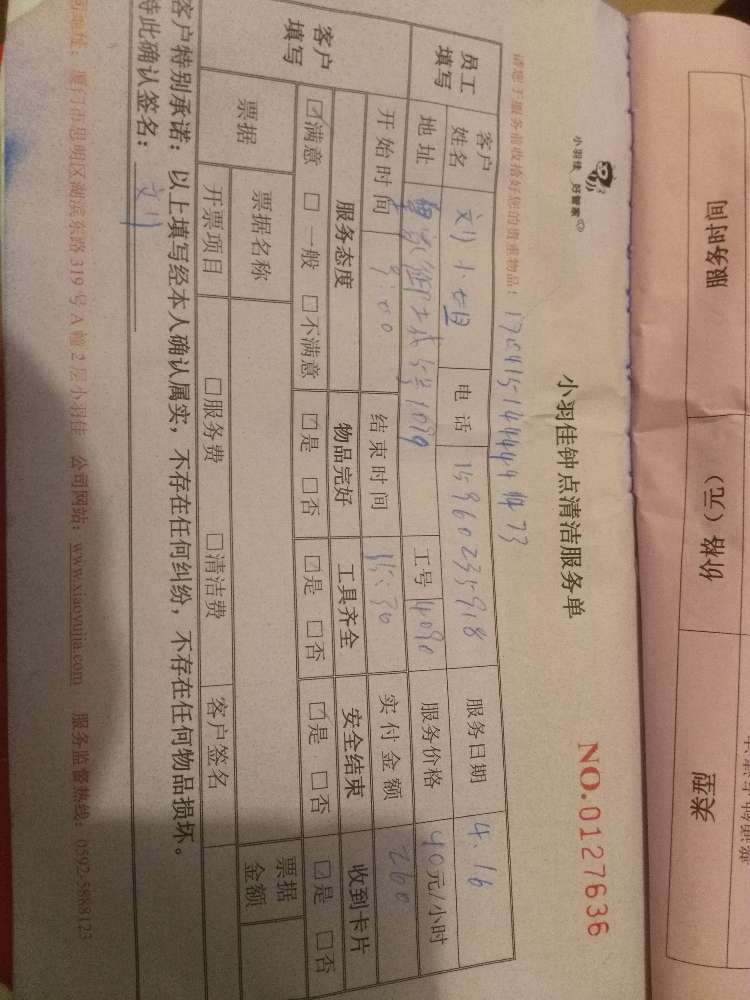 服务时间 价格（元） 类型
小羽佳 好管家
小羽佳钟点清洁服务单
NO.0127636
请您于服务前收拾好您的贵重物品!
员工填写 客户姓名 刘小姐 电话 15960235918 服务日期 4.16
地址 工号 4090 服务价格 40元/小时
开始时间 9:00 结束时间 15:30 实付金额 260
客户填写 服务态度 物品完好 工具齐全 安全结束 收到卡片
☑满意 □一般 □不满意 ☑是 □否 ☑是 □否 ☑是 □否 ☑是 □否
票据 票据名称 票据金额
开票项目 □服务费 □清洁费 客户签名
客户特别承诺：以上填写经本人确认属实，不存在任何纠纷，不存在任何物品损坏。
特此确认签名：刘
司地址：厦门市思明区湖滨东路319号A幢2层小羽佳 公司网站：www.xiaoyujia.com 服务监督热线：0592-5888123